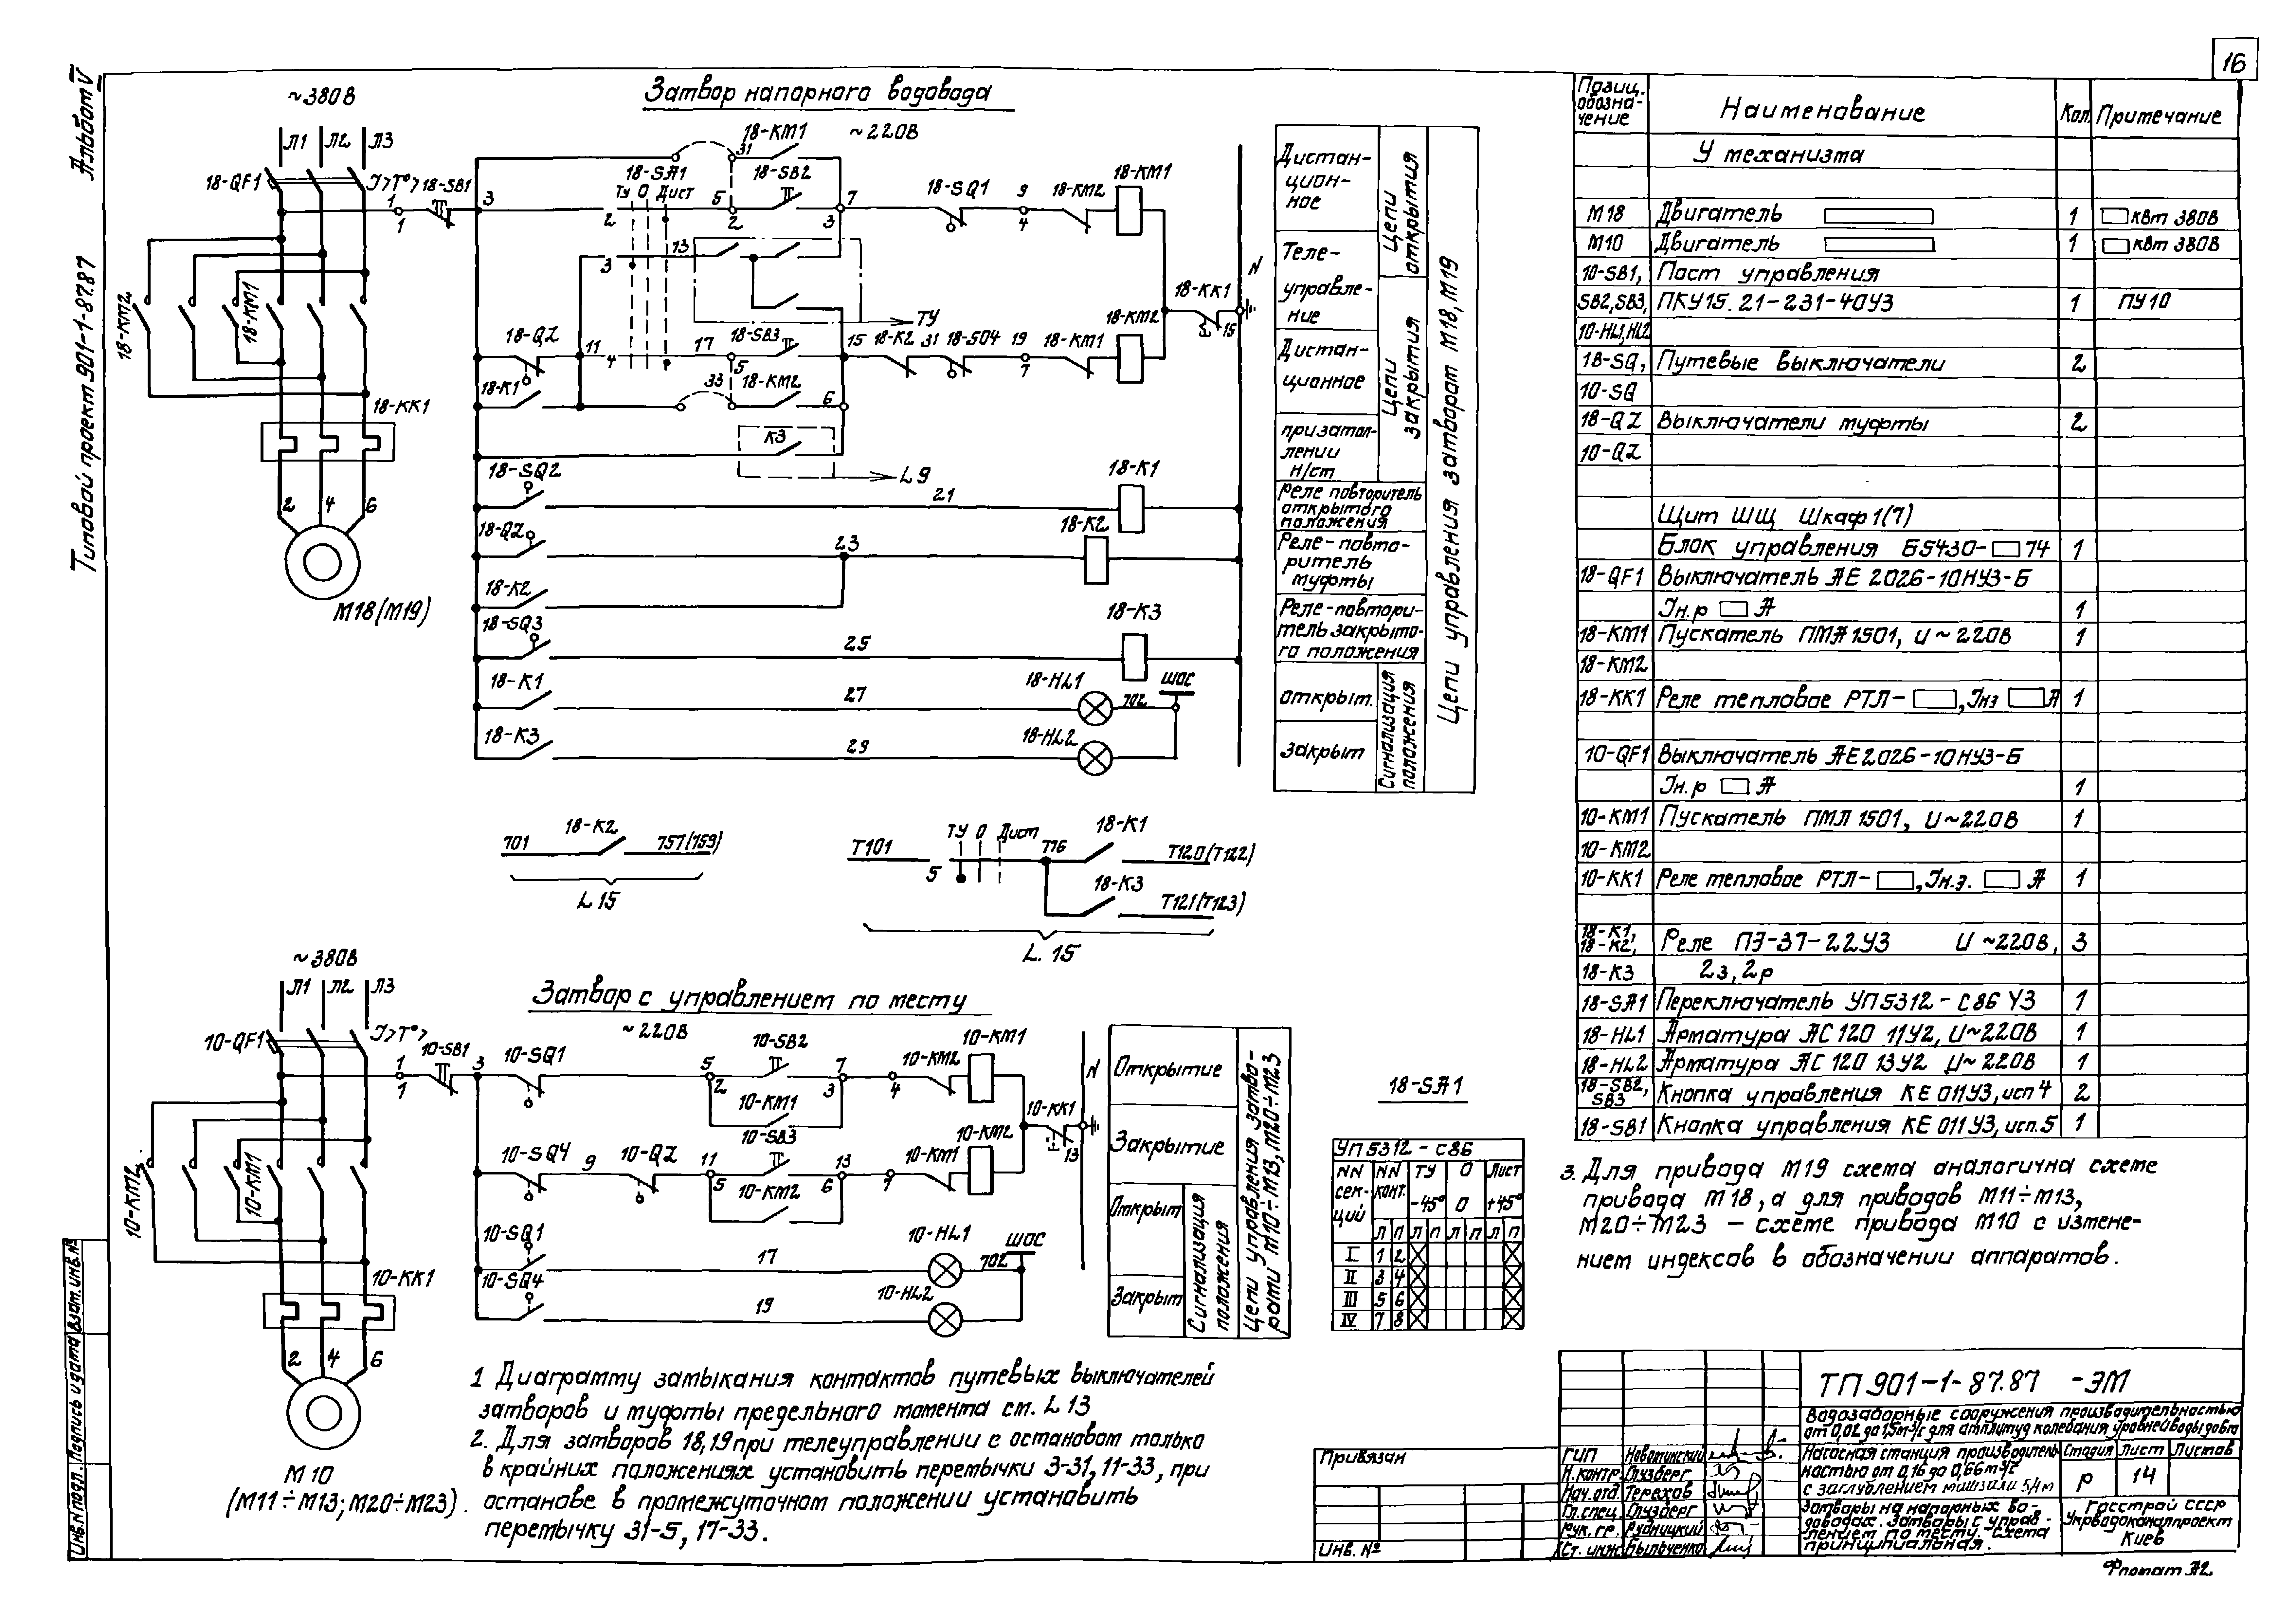 16
Альбом V
Типовой проект 901-1-87.87
Затвор напорного водовода
~380В
Л1 Л2 Л3
18-QF1
I>T°>
18-SB1
18-KM2
18-KM1
18-KK1
2 4 6
М18(М19)
~220В
18-KM1
31
18-SA1
ТУ О Дист
18-SB2
1 3 2 5 2 7 3
1
18-SQ1
9
4
18-KM2
18-KM1
13
3
ТУ
N
18-KK1
15
18-QZ
11
4
17
18-SB3
5
15
18-K2
31
18-SQ4
19
7
18-KM1
18-KM2
18-K1
33
18-KM2
6
К3
L 9
18-SQ2
21
18-K1
18-QZ
23
18-K2
18-K2
18-SQ3
25
18-K3
18-K1
27
18-HL1
702
ШОС
18-K3
29
18-HL2
Дистан-
цион-
ное
Цепи
открытия
Теле-
управле-
ние
Дистан-
ционное
Цепи
закрытия
при затоп-
лении
н/ст
Реле повторитель
открытого
положения
Реле-повто-
ритель
муфты
Реле-повтори-
тель закрыто-
го положения
открыт.
закрыт
Сигнализация
положения
Цепи управления затворот М18, М19
701
18-K2
757(759)
L 15
Т101
ТУ О Дист
5
Т16
18-K1
Т120(Т122)
18-K3
Т121(Т123)
L. 15
Затвор с управлением по месту
~380В
Л1 Л2 Л3
10-QF1
I>T°>
10-SB1
10-KM2
10-KM1
10-KK1
2 4 6
М10
(М11÷М13; М20÷М23).
~220В
1
1
3
10-SQ1
5
2
10-SB2
7
3
4
10-KM2
10-KM1
10-KM1
N
10-KK1
13
10-SQ4
9
10-QZ
11
5
10-SB3
13
6
7
10-KM1
10-KM2
10-KM2
10-SQ1
17
10-HL1
702
ШОС
10-SQ4
19
10-HL2
Открытие
Закрытие
Открыт
Закрыт
Сигнализация
положения
Цепи управления затво-
рами М10÷М13, М20÷М23
18-SA1
УП 5312 - С86
NN сек-ций
NN конт.
ТУ О Дист
-45° 0 +45°
Л П Л П Л П Л П
I 1 2
II 3 4
III 5 6
IV 7 8
1 Диаграмму замыкания контактов путевых выключателей
затворов и муфты предельного момента см. L 13
2. Для затворов 18,19 при телеуправлении с остановом только
в крайних положениях установить перемычки 3-31, 11-33, при
останове в промежуточном положении установить
перемычку 31-5, 17-33.
Позиц. обозна-чение
Наименование
Кол.
Примечание
У механизма
М18 Двигатель 1 квт 380В
М10 Двигатель 1 квт 380В
10-SB1, Пост управления
SB2, SB3, ПКУ15.21-231-40У3 1 ПУ10
10-HL1, HL2
18-SQ, Путевые выключатели 2
10-SQ
18-QZ Выключатели муфты 2
10-QZ
Щит ШЩ Шкаф 1(7)
Блок управления Б5430- 74 1
18-QF1 Выключатель АЕ 2026-10НУ3-Б
Iн.р А 1
18-KM1 Пускатель ПМА 1501, U ~ 220В 1
18-KM2
18-KK1 Реле тепловое РТЛ- , Iнз А 1
10-QF1 Выключатель АЕ2026-10НУ3-Б
Iн.р А 1
10-KM1 Пускатель ПМЛ 1501, U~220В 1
10-KM2
10-KK1 Реле тепловое РТЛ- , Iн.э. А 1
18-K1,
18-K2, Реле ПЭ-37-22У3 U ~220В, 3
18-K3 2з, 2р
18-SA1 Переключатель УП5312-С86 У3 1
18-HL1 Арматура АС 120 11У2, U~220В 1
18-HL2 Арматура АС 120 13У2 U~220В 1
18-SB2, SB3 Кнопка управления КЕ 011У3, исп 4 2
18-SB1 Кнопка управления КЕ 011У3, исп. 5 1
3. Для привода М19 схема аналогична схеме
привода М18, а для приводов М11÷М13,
М20÷М23 – схеме привода М10 с измене-
нием индексов в обозначении аппаратов.
Привязан
Инв. №
ТП 901-1-87.87 -ЭМ
Водозаборные сооружения производительностью
от 0,02 до 1,5 м³/с для амплитуд колебания уровней воды до 6м
ГИП Новоминский
Н.контр. Глузберг
Нач.отд. Терехов
Гл.спец. Глузберг
Рук. гр. Рудницкий
Ст. инж. Выльченко
Насосная станция производитель-
ностью от 0,16 до 0,66 м³/с
с заглублением машзала 5,4 м
Стадия Лист Листов
Р 14
Затворы на напорных во-
доводах. Затворы с управ-
лением по месту. Схема
принципиальная.
Госстрой СССР
Укрводоканалпроект
Киев
Формат А2
Инв.№ подл. Подпись и дата Взам.инв.№